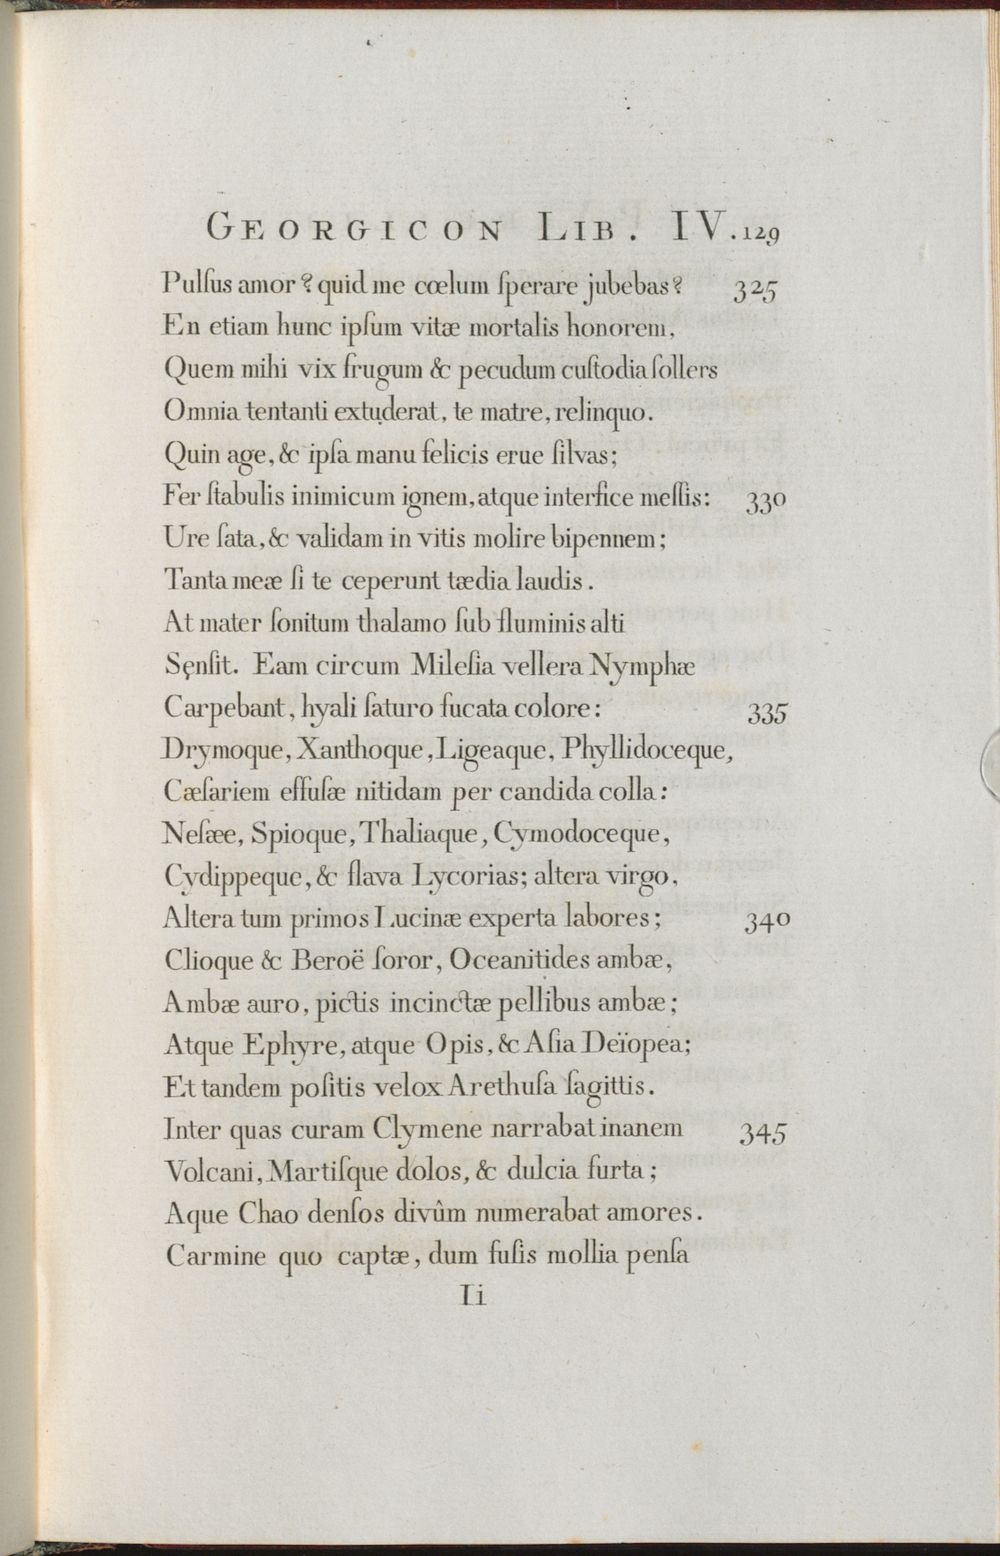 GEORGICON LIB. IV. 129
Pulſus amor? quid me cœlum ſperare jubebas? 325
En etiam hunc ipſum vitæ mortalis honorem,
Quem mihi vix frugum & pecudum cuſtodia ſollers
Omnia tentanti extuderat, te matre, relinquo.
Quin age, & ipſa manu felicis erue ſilvas;
Fer ſtabulis inimicum ignem, atque interfice meſſis: 330
Ure ſata, & validam in vitis molire bipennem;
Tanta meæ ſi te ceperunt tædia laudis.
At mater ſonitum thalamo ſub fluminis alti
Sęnſit. Eam circum Mileſia vellera Nymphæ
Carpebant, hyali ſaturo fucata colore: 335
Drymoque, Xanthoque, Ligeaque, Phyllidoceque,
Cæſariem effuſæ nitidam per candida colla:
Neſæe, Spioque, Thaliaque, Cymodoceque,
Cydippeque, & flava Lycorias; altera virgo,
Altera tum primos Lucinæ experta labores; 340
Clioque & Beroë ſoror, Oceanitides ambæ,
Ambæ auro, pictis incinctæ pellibus ambæ;
Atque Ephyre, atque Opis, & Aſia Deïopea;
Et tandem poſitis velox Arethuſa ſagittis.
Inter quas curam Clymene narrabat inanem 345
Volcani, Martiſque dolos, & dulcia furta;
Aque Chao denſos divûm numerabat amores.
Carmine quo captæ, dum fuſis mollia penſa
Ii